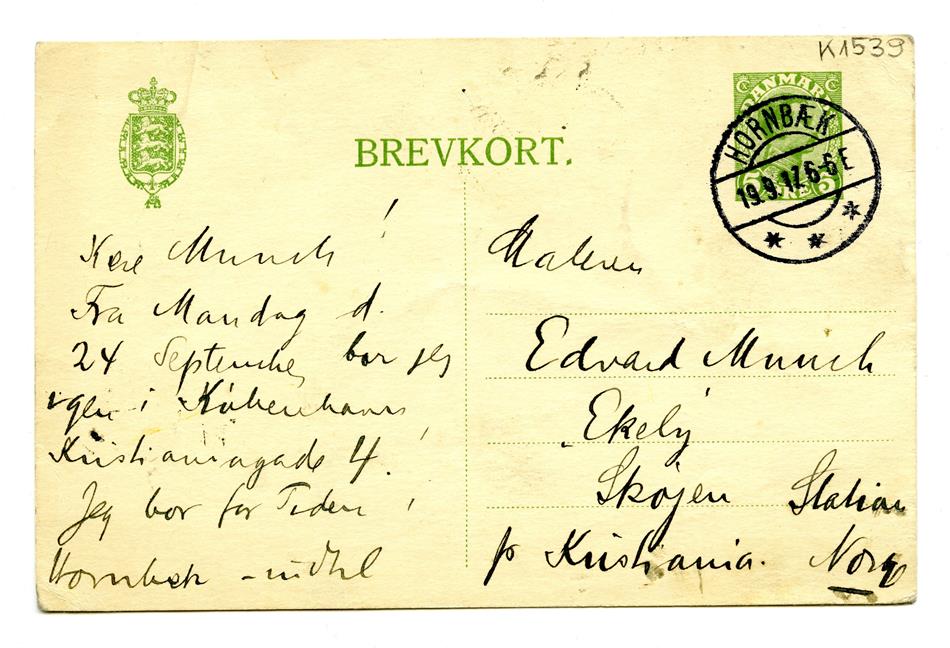 K1539
DANMARK
HORNBÆK
19.9.17. 6-6 E
5 ØRE 5
BREVKORT.
Kære Munch!
Fra Mandag d.
24 September bor jeg
igen i København
Kristianiagade 4.
Jeg bor for Tiden i
Hornbæk - indtil
Maleren
Edvard Munch
Ekely
Skøjen Station
pr Kristiania.
Norge